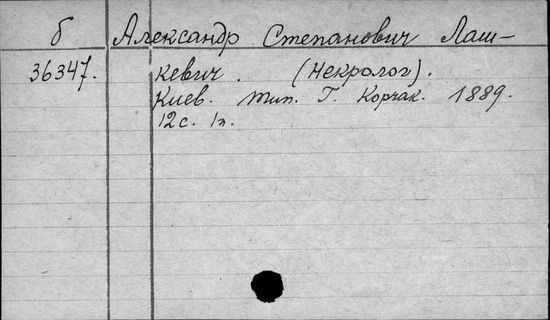 б Александр Степанович Лаш-
36347. кевич. (Некролог).
Киев. тип. Г. Корчак. 1889.
12 с. 1 л.